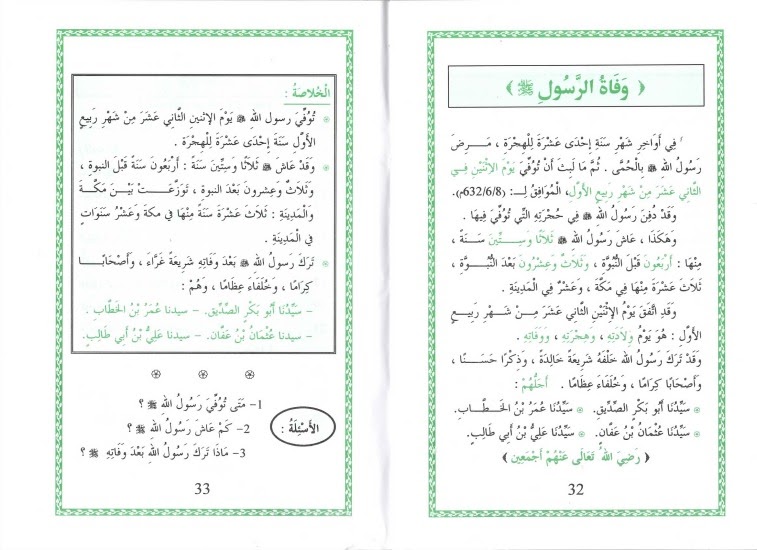 ﴿ وَفَاةُ الرَّسُولِ ﷺ ﴾
فِي أَوَاخِرِ شَهْرِ سَنَةِ إِحْدَى عَشَرَةَ لِلْهِجْرَةِ ، مَـرِضَ
رَسُولُ اللهِ ﷺ بِالْحُمَّى . ثُمَّ مَا لَبِثَ أَنْ تُوُفِّيَ يَوْمَ الإِثْنَيْنِ فِي
الثَّانِي عَشَرَ مِنْ شَهْرِ رَبِيعِ الأَوَّلِ، الْمُوَافِقُ لِـ: (632/6/8م).
وَقَدْ دُفِنَ رَسُولُ اللهِ ﷺ فِي حُجْرَتِهِ الَّتِي تُوُفِّيَ فِيهَا .
وَهَكَذَا ، عَاشَ رَسُولُ اللهِ ﷺ ثَلاَثًا وَسِـتِّـيـنَ سَنَةً ،
مِنْهَا : أَرْبَعُونَ قَبْلَ النُّبُوَّةِ ، وَثَلاَثٌ وَعِشْرُونَ بَعْدَ النُّبُـوَّةِ ،
ثَلاَثَ عَشَرَةَ مِنْهَا فِي مَكَّةَ ، وَعَشْرٌ فِي الْمَدِينَةِ .
وَقَدِ اتَّفَقَ يَوْمُ الإِثْنَيْنِ الثَّانِي عَشَرَ مِـنْ شَـهْرِ رَبِيـعٍ
الأَوَّلِ : هُوَ يَوْمُ وِلاَدَتِهِ ، وَهِجْرَتِهِ ، وَوَفَاتِهِ .
وَقَدْ تَرَكَ رَسُولُ اللهِ خَلْفَهُ شَرِيعَةً خَالِدَةً ، وَذِكْرًا حَسَـنًـا ،
وَأَصْحَابًا كِرَامًا ، وَخُلَفَاءَ عِظَامًا . أَجَلُّهُمْ :
* سَيِّدُنَا أَبُو بَكْرٍ الصِّدِّيقِ. * سَيِّدُنَا عُمَرُ بْنُ الْخَطَّـابِ.
* سَيِّدُنَا عُثْمَانُ بْنُ عَفَّانٍ. * سَيِّدُنَا عَلِيُّ بْنُ أَبِي طَالِبٍ.
﴿ رَضِيَ اللهُ تَعَالَى عَنْهُمْ أَجْمَعِينَ ﴾
32
الْخُلاَصَةُ :
* تُوُفِّيَ رسول اللهِ ﷺ يَوْمَ الإثنين الثَّاني عَشَرَ مِنْ شَهْرِ رَبِيعٍ
الأَوَّلِ سَنَةَ إِحْدَى عَشَرَةَ لِلْهِجْرَةِ .
* وَقَدْ عَاشَ ﷺ ثَلاَثًا وَسِتِّينَ سَنَةً : أَرْبَعُونَ سَنَةً قَبْلَ النبوة ،
وَثَلاَثٌ وعِشرونَ بَعْدَ النبوة ، تَوَزَّعَـتْ بَيْـنَ مَكَّـةَ
وَالْمَدِينَةِ : ثَلاَثَ عَشْرَةَ سَنَةً مِنْهَا فِي مكةَ وَعَشْرُ سَنَوَاتٍ
فِي الْمَدِينَةِ .
* تَرَكَ رَسُولُ اللهِ ﷺ بَعْدَ وَفَاتِهِ شَرِيعَةً غَرَّاءَ ، وَأَصْحَابًـا
كِرَامًا ، وَخُلَفَاءَ عِظَامًا ، وَهُمْ :
– سَيِّدُنَا أَبُو بَكْرٍ الصِّدِّيقِ. – سيدنا عُمَرُ بْنُ الْخَطَّابِ .
– سيدنا عُثْمَانُ بْنُ عَفَّان. – سيدنا عَلِيُّ بْنُ أَبِي طَالِبٍ.
الأَسْئِلَةُ :
1– مَتَى تُوُفِّيَ رَسُولُ اللهِ ﷺ ؟
2– كَمْ عَاشَ رَسُولُ اللهِ ﷺ ؟
3– مَاذَا تَرَكَ رَسُولُ اللهِ بَعْدَ وَفَاتِهِ ﷺ ؟
33